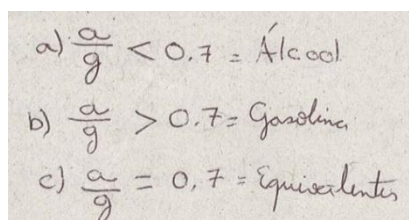 a) a/g < 0.7 = Álcool
b) a/g > 0.7 = Gasolina
c) a/g = 0,7 = Equivalentes